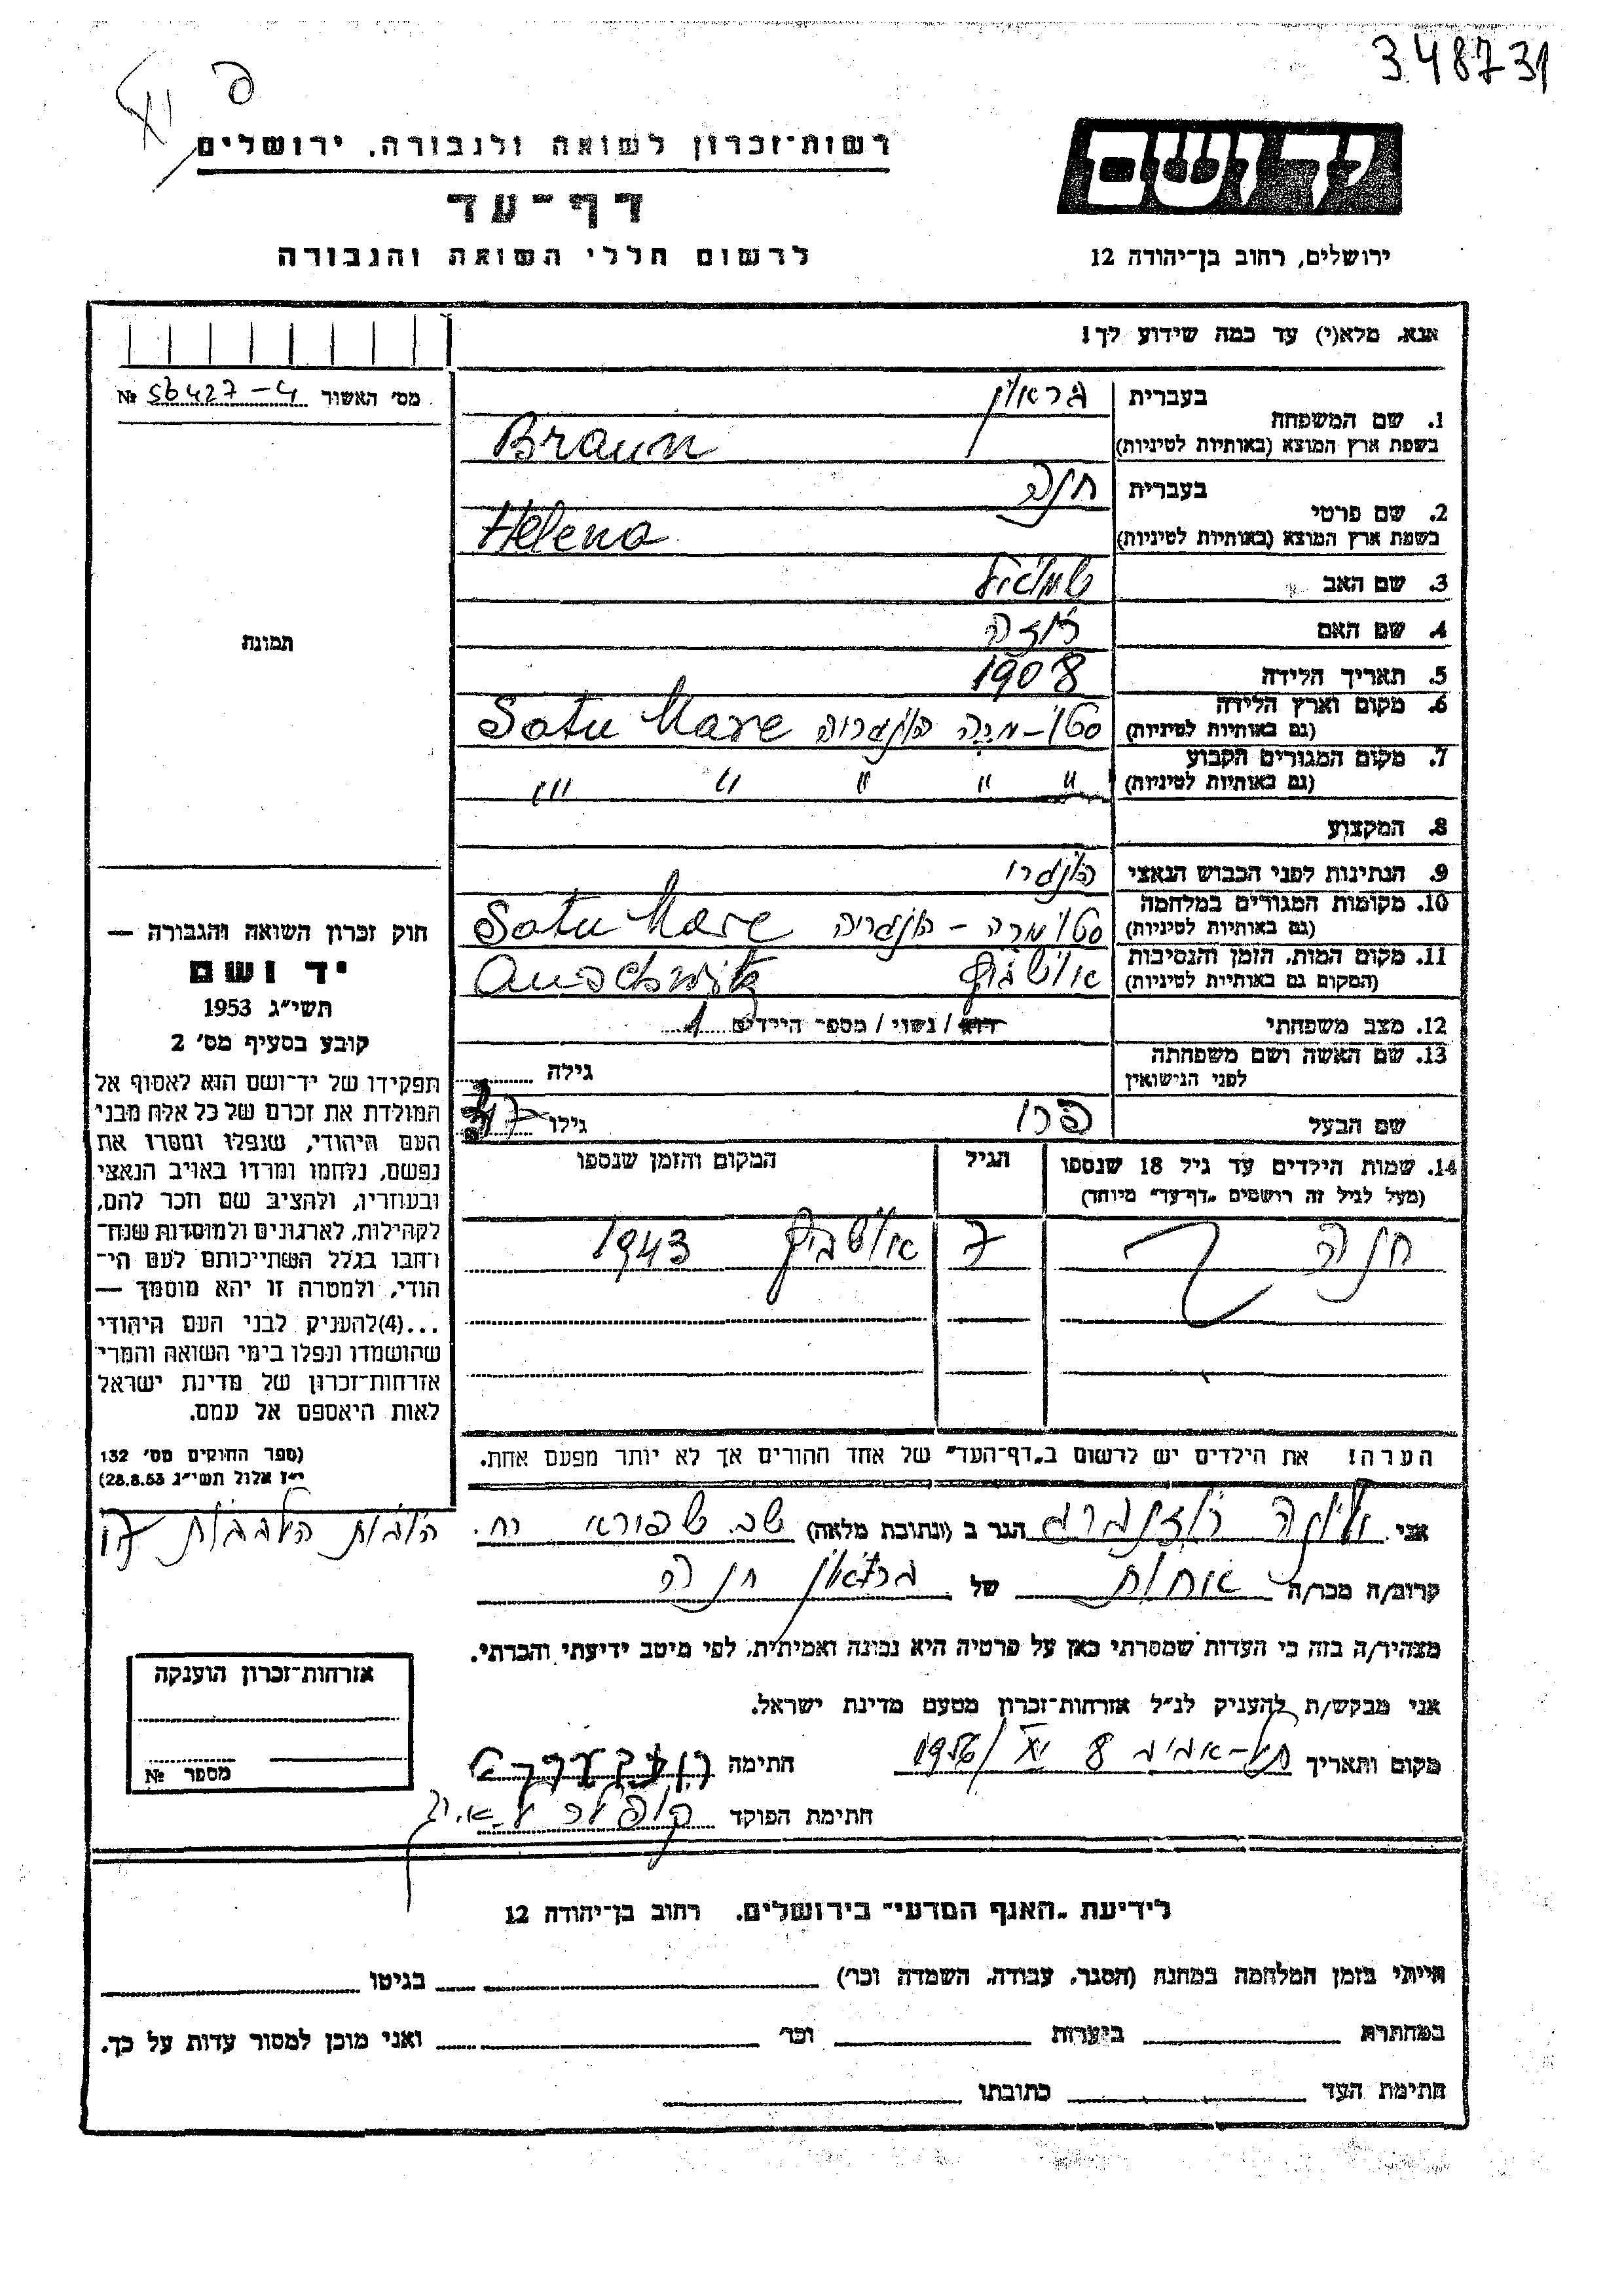 348731
רשות-זכרון לשואה ולגבורה, ירושלים
יד ושם
דף-עד
לרשום חללי השואה והגבורה
ירושלים, רחוב בן-יהודה 12
אנא, מלא(י) עד כמה שידוע לך!
מס' האשור 56427-4 №
תמונה
1. שם המשפחה
בעברית בראון
בשפת ארץ המוצא (באותיות לטיניות) Braun
2. שם פרטי
בעברית חנה
בשפת ארץ המוצא (באותיות לטיניות) Helena
3. שם האב שמואל
4. שם האם רוזה
5. תאריך הלידה 1908
6. מקום וארץ הלידה
(גם באותיות לטיניות) סטו-מרה הונגריה Satu Mare
7. מקום המגורים הקבוע
(גם באותיות לטיניות) " " " " "
8. המקצוע
9. הנתינות לפני הכבוש הנאצי הונגרו
10. מקומות המגורים במלחמה
(גם באותיות לטיניות) סטו מרה - הונגריה Satu Mare
11. מקום המות, הזמן והנסיבות
(המקום גם באותיות לטיניות) אושביץ Auschwitz
12. מצב משפחתי רווא / נשוי / מספר הילדים 1
13. שם האשה ושם משפחתה
לפני הנישואין גילה
שם הבעל גילו 47
14. שמות הילדים עד גיל 18 שנספו
(מעל לגיל זה רושמים "דף-עד" מיוחד)
הגיל
המקום והזמן שנספו
חנה 7 אושביץ 1943
הערה! את הילדים יש לרשום ב"דף-העד" של אחד ההורים אך לא יותר מפעם אחת.
חוק זכרון השואה והגבורה —
יד ושם
תשי"ג 1953
קובע בסעיף מס' 2
תפקידו של יד-ושם הוא לאסוף אל
המולדת את זכרם של כל אלה מבני
העם היהודי, שנפלו ומסרו את
נפשם, נלחמו ומרדו באויב הנאצי
ובעוזריו, ולהציב שם וזכר להם,
לקהילות, לארגונים ולמוסדות שנח-
רבו בגלל השתייכותם לעם הי-
הודי, ולמטרה זו יהא מוסמך —
...(4)להעניק לבני העם היהודי
שהושמדו ונפלו בימי השואה והמרי
אזרחות-זכרון של מדינת ישראל
לאות היאספם אל עמם.
(ספר החוקים מס' 132
י"ז אלול תשי"ג 28.8.53)
אני רוזנברג הגר ב (ונתובת מלאה) שב. שפירא רח.
חובות הלבבות 17
קרוב/ה מכר/ה אחות של בראון חנה
מצהיר/ה בזה כי העדות שמסרתי כאן על פרטיה היא נכונה ואמיתית, לפי מיטב ידיעתי והכרתי.
אני מבקש/ת להעניק לנ"ל אזרחות-זכרון מטעם מדינת ישראל.
מקום ותאריך תל-אביב 8 1956/XI חתימה
חתימת הפוקד
אזרחות-זכרון הוענקה
מספר №
לידיעת "האגף המדעי" בירושלים, רחוב בן-יהודה 12
הייתי בזמן המלחמה במחנה (הסגר, עבודה, השמדה וכר') בגיטו
במחתרת ביערות וכר' ואני מוכן למסור עדות על כך.
חתימת העד כתובתו